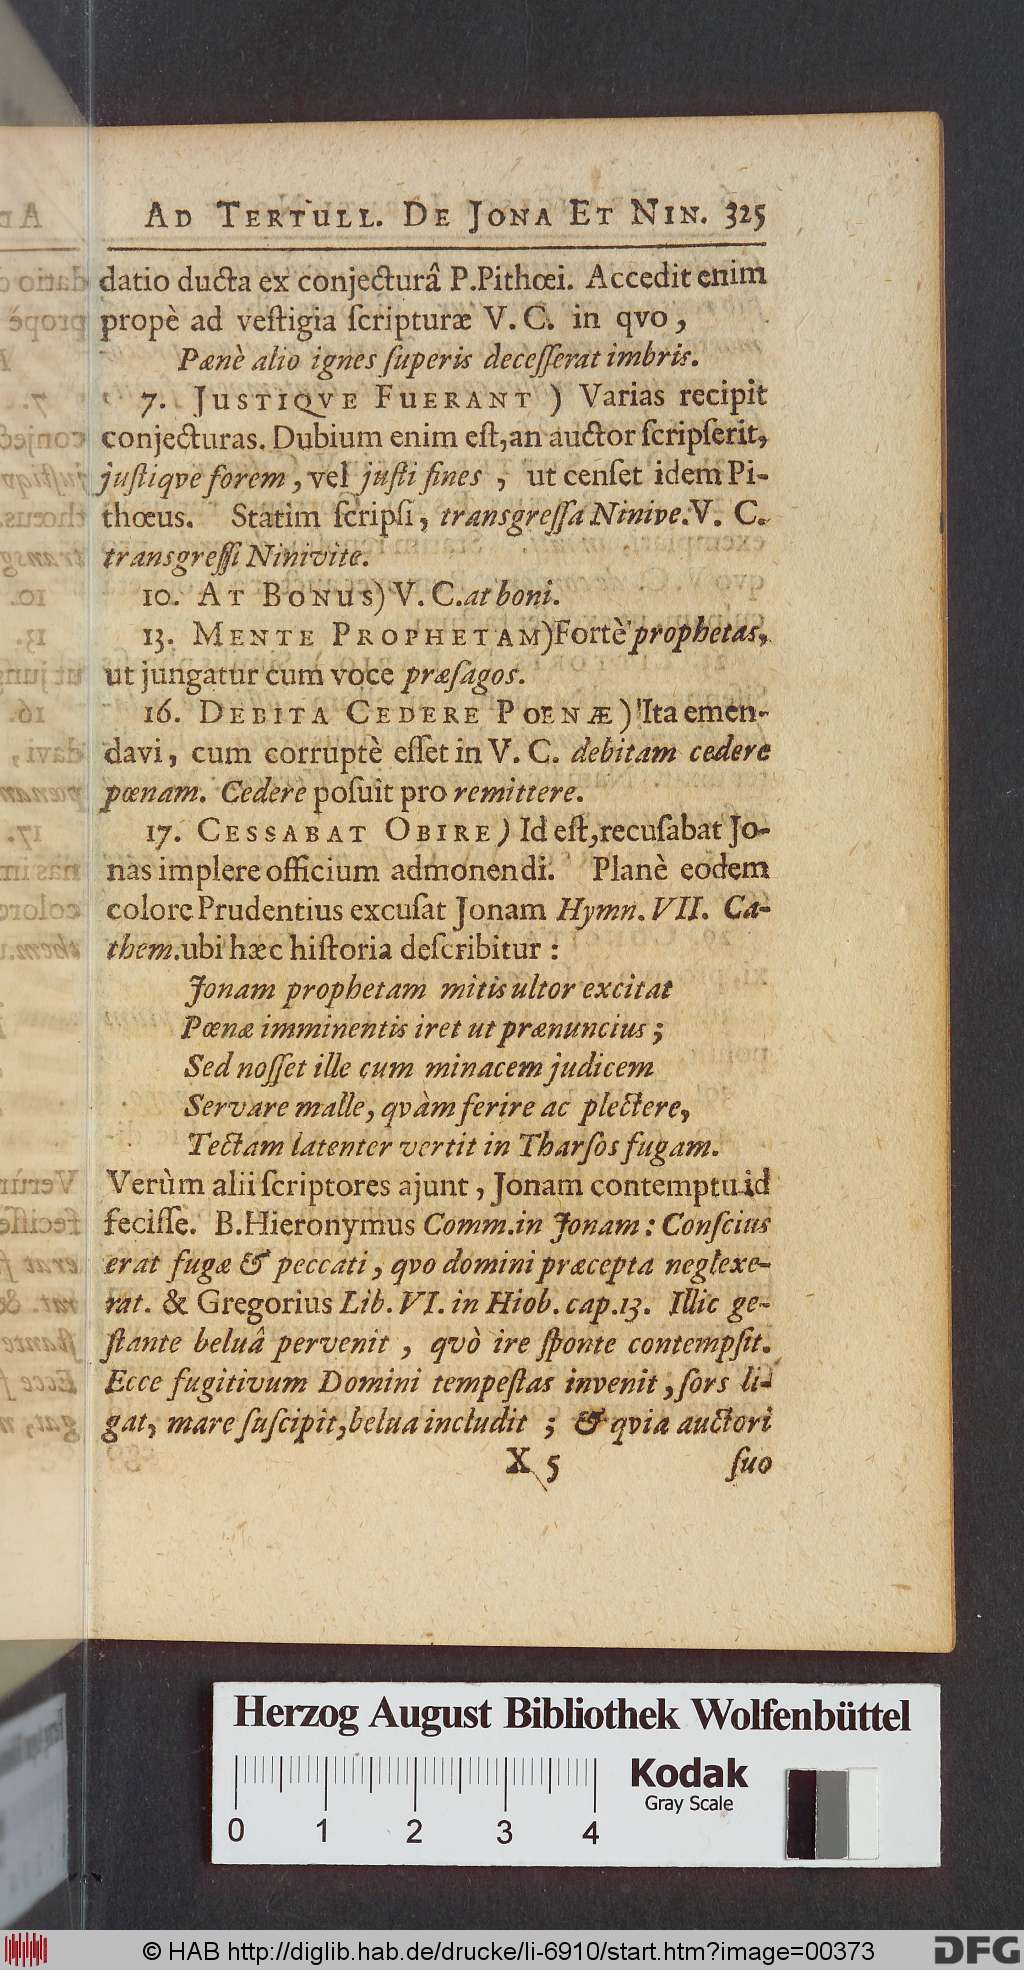 AD TERTULL. DE JONA ET NIN. 325
datio ducta ex conjecturâ P. Pithœi. Accedit enim
propè ad vestigia scripturæ V. C. in qvo,
Pænè alio ignes superis decesserat imbris.
7. JUSTIQVE FUERANT ) Varias recipit
conjecturas. Dubium enim est, an auctor scripserit,
justiqve forem, vel justi fines, ut censet idem Pi-
thœus. Statim scripsi, transgressa Ninive. V. C.
transgressi Ninivite.
10. AT BONUS) V. C. at boni.
13. MENTE PROPHETAM) Fortè prophetas,
ut jungatur cum voce præsagos.
16. DEBITA CEDERE POENÆ) Ita emen-
davi, cum corruptè esset in V. C. debitam cedere
pœnam. Cedere posuit pro remittere.
17. CESSABAT OBIRE) Id est, recusabat Jo-
nas implere officium admonendi. Planè eodem
colore Prudentius excusat Jonam Hymn. VII. Ca-
them. ubi hæc historia describitur :
Jonam prophetam mitis ultor excitat
Pœnæ imminentis iret ut prænuncius ;
Sed nosset ille cum minacem judicem
Servare malle, qvàm ferire ac plectere,
Tectam latenter vertit in Tharsos fugam.
Verùm alii scriptores ajunt, Jonam contemptu id
fecisse. B. Hieronymus Comm. in Jonam : Conscius
erat fugæ & peccati, qvo domini præcepta neglexe-
rat. & Gregorius Lib. VI. in Hiob. cap. 13. Illic ge-
stante beluâ pervenit, qvò ire sponte contempsit.
Ecce fugitivum Domini tempestas invenit, sors li-
gat, mare suscipit, belua includit ; & qvia auctori
X 5 suo
Herzog August Bibliothek Wolfenbüttel
Kodak
Gray Scale
0 1 2 3 4
© HAB http://diglib.hab.de/drucke/li-6910/start.htm?image=00373
DFG